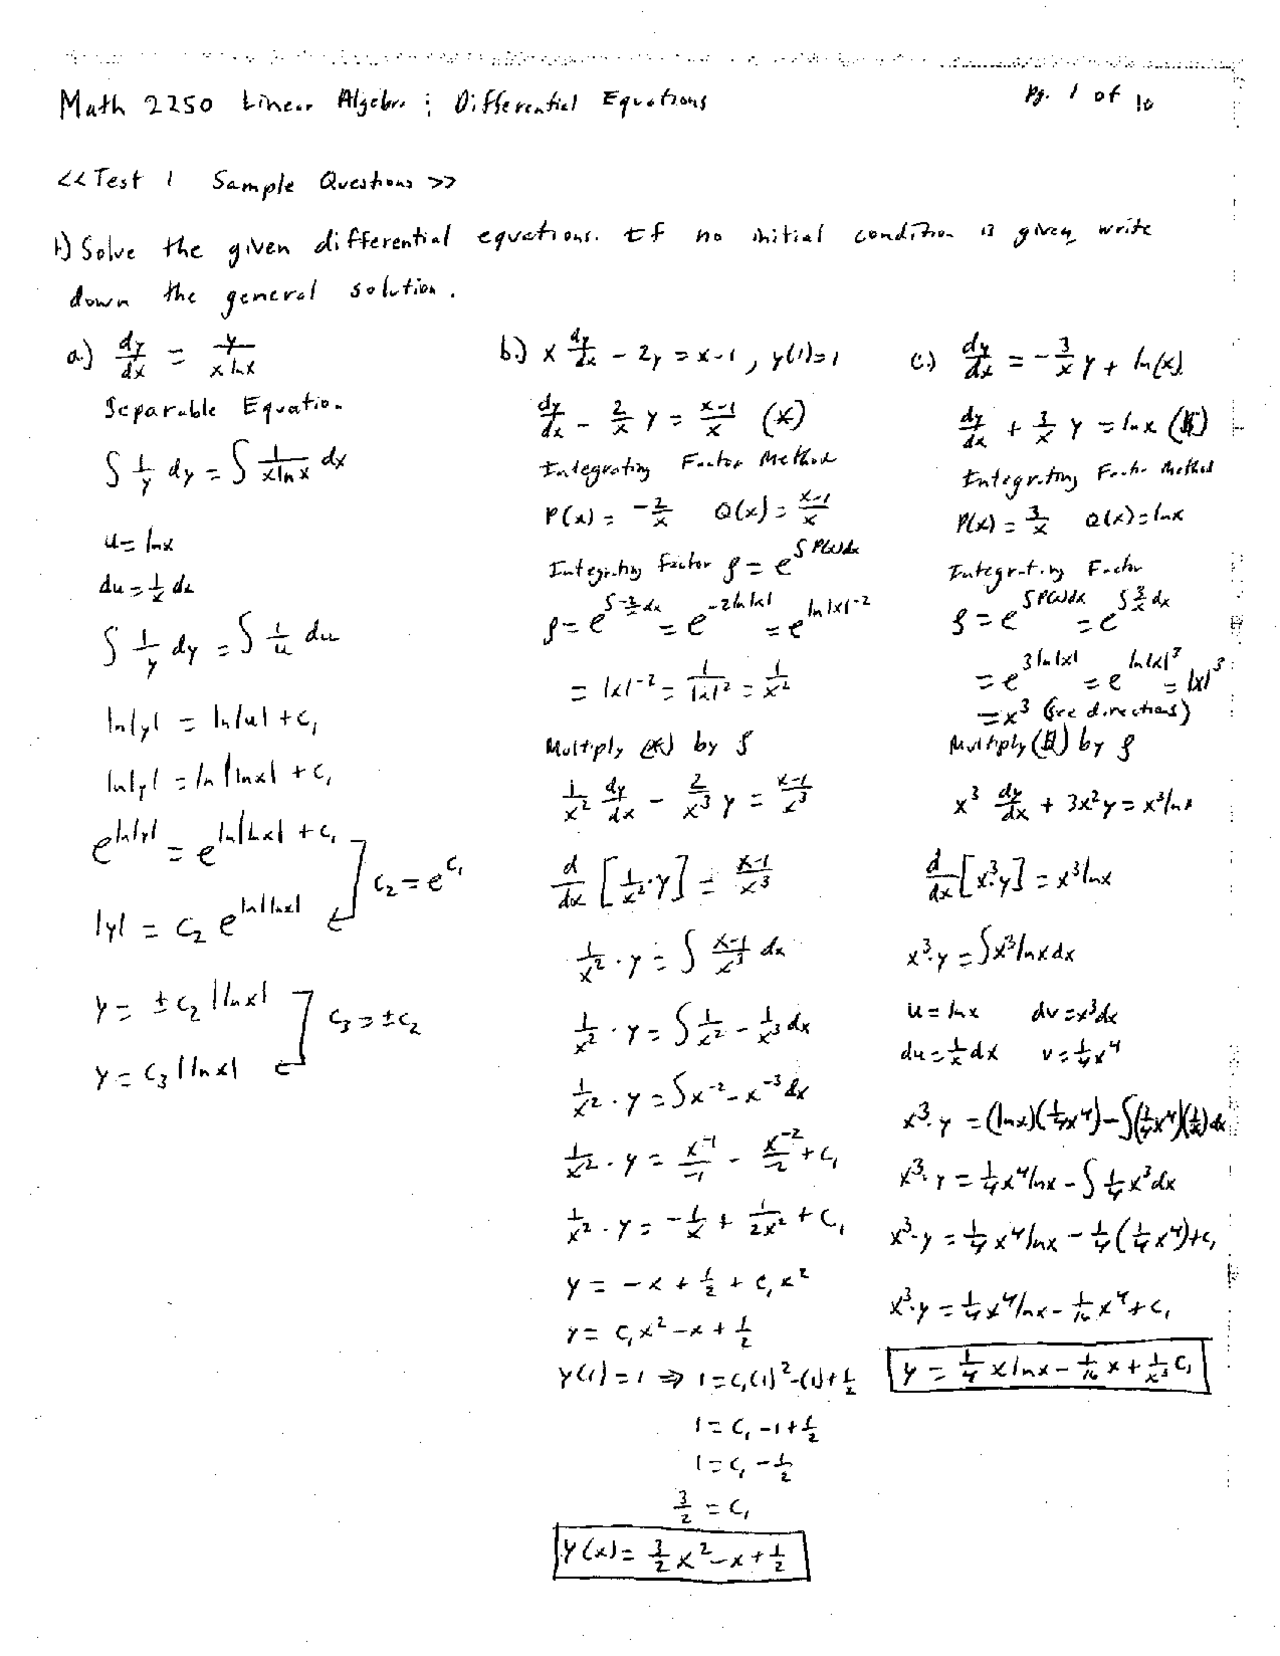 Math 2250 Linear Algebra & Differential Equations
pg. 1 of 10
<<Test 1 Sample Questions>>
1) Solve the given differential equations. If no initial condition is given, write
down the general solution.
a.) dy/dx = y/(x ln x)
Separable Equation
∫ 1/y dy = ∫ 1/(x ln x) dx
u = ln x
du = 1/x dx
∫ 1/y dy = ∫ 1/u du
ln|y| = ln|u| + C₁
ln|y| = ln|ln x| + C₁
e^(ln|y|) = e^(ln|ln x| + C₁)
C₂ = e^(C₁)
|y| = C₂ e^(ln|ln x|)
y = ± C₂ |ln x|
C₃ = ± C₂
y = C₃ |ln x|
b.) x dy/dx - 2y = x-1, y(1) = 1
dy/dx - 2/x y = (x-1)/x (*)
Integrating Factor Method
P(x) = -2/x Q(x) = (x-1)/x
Integrating Factor ρ = e^(∫P(x)dx)
ρ = e^(∫-2/x dx) = e^(-2ln|x|) = e^(ln|x|^-2)
= |x|^-2 = 1/|x|² = 1/x²
Multiply (*) by ρ
1/x² dy/dx - 2/x³ y = (x-1)/x³
d/dx [1/x² · y] = (x-1)/x³
1/x² · y = ∫ (x-1)/x³ dx
1/x² · y = ∫ 1/x² - 1/x³ dx
1/x² · y = ∫ x^-2 - x^-3 dx
1/x² · y = x^-1/-1 - x^-2/-2 + C₁
1/x² · y = -1/x + 1/(2x²) + C₁
y = -x + 1/2 + C₁x²
y = C₁x² - x + 1/2
y(1) = 1 ⇒ 1 = C₁(1)² - (1) + 1/2
1 = C₁ - 1 + 1/2
1 = C₁ - 1/2
3/2 = C₁
y(x) = 3/2 x² - x + 1/2
c.) dy/dx = -3/x y + ln(x)
dy/dx + 3/x y = ln x
Integrating Factor Method
P(x) = 3/x Q(x) = ln x
Integrating Factor
ρ = e^(∫P(x)dx) = e^(∫3/x dx)
= e^(3ln|x|) = e^(ln|x|³) = |x|³
= x³ (see directions)
Multiply by ρ
x³ dy/dx + 3x²y = x³ ln x
d/dx [x³·y] = x³ ln x
x³·y = ∫ x³ ln x dx
u = ln x dv = x³dx
du = 1/x dx v = 1/4 x⁴
x³·y = (ln x)(1/4 x⁴) - ∫(1/4 x⁴)(1/x) dx
x³·y = 1/4 x⁴ ln x - ∫ 1/4 x³ dx
x³·y = 1/4 x⁴ ln x - 1/4 (1/4 x⁴) + C₁
x³·y = 1/4 x⁴ ln x - 1/16 x⁴ + C₁
y = 1/4 x ln x - 1/16 x + 1/x³ C₁